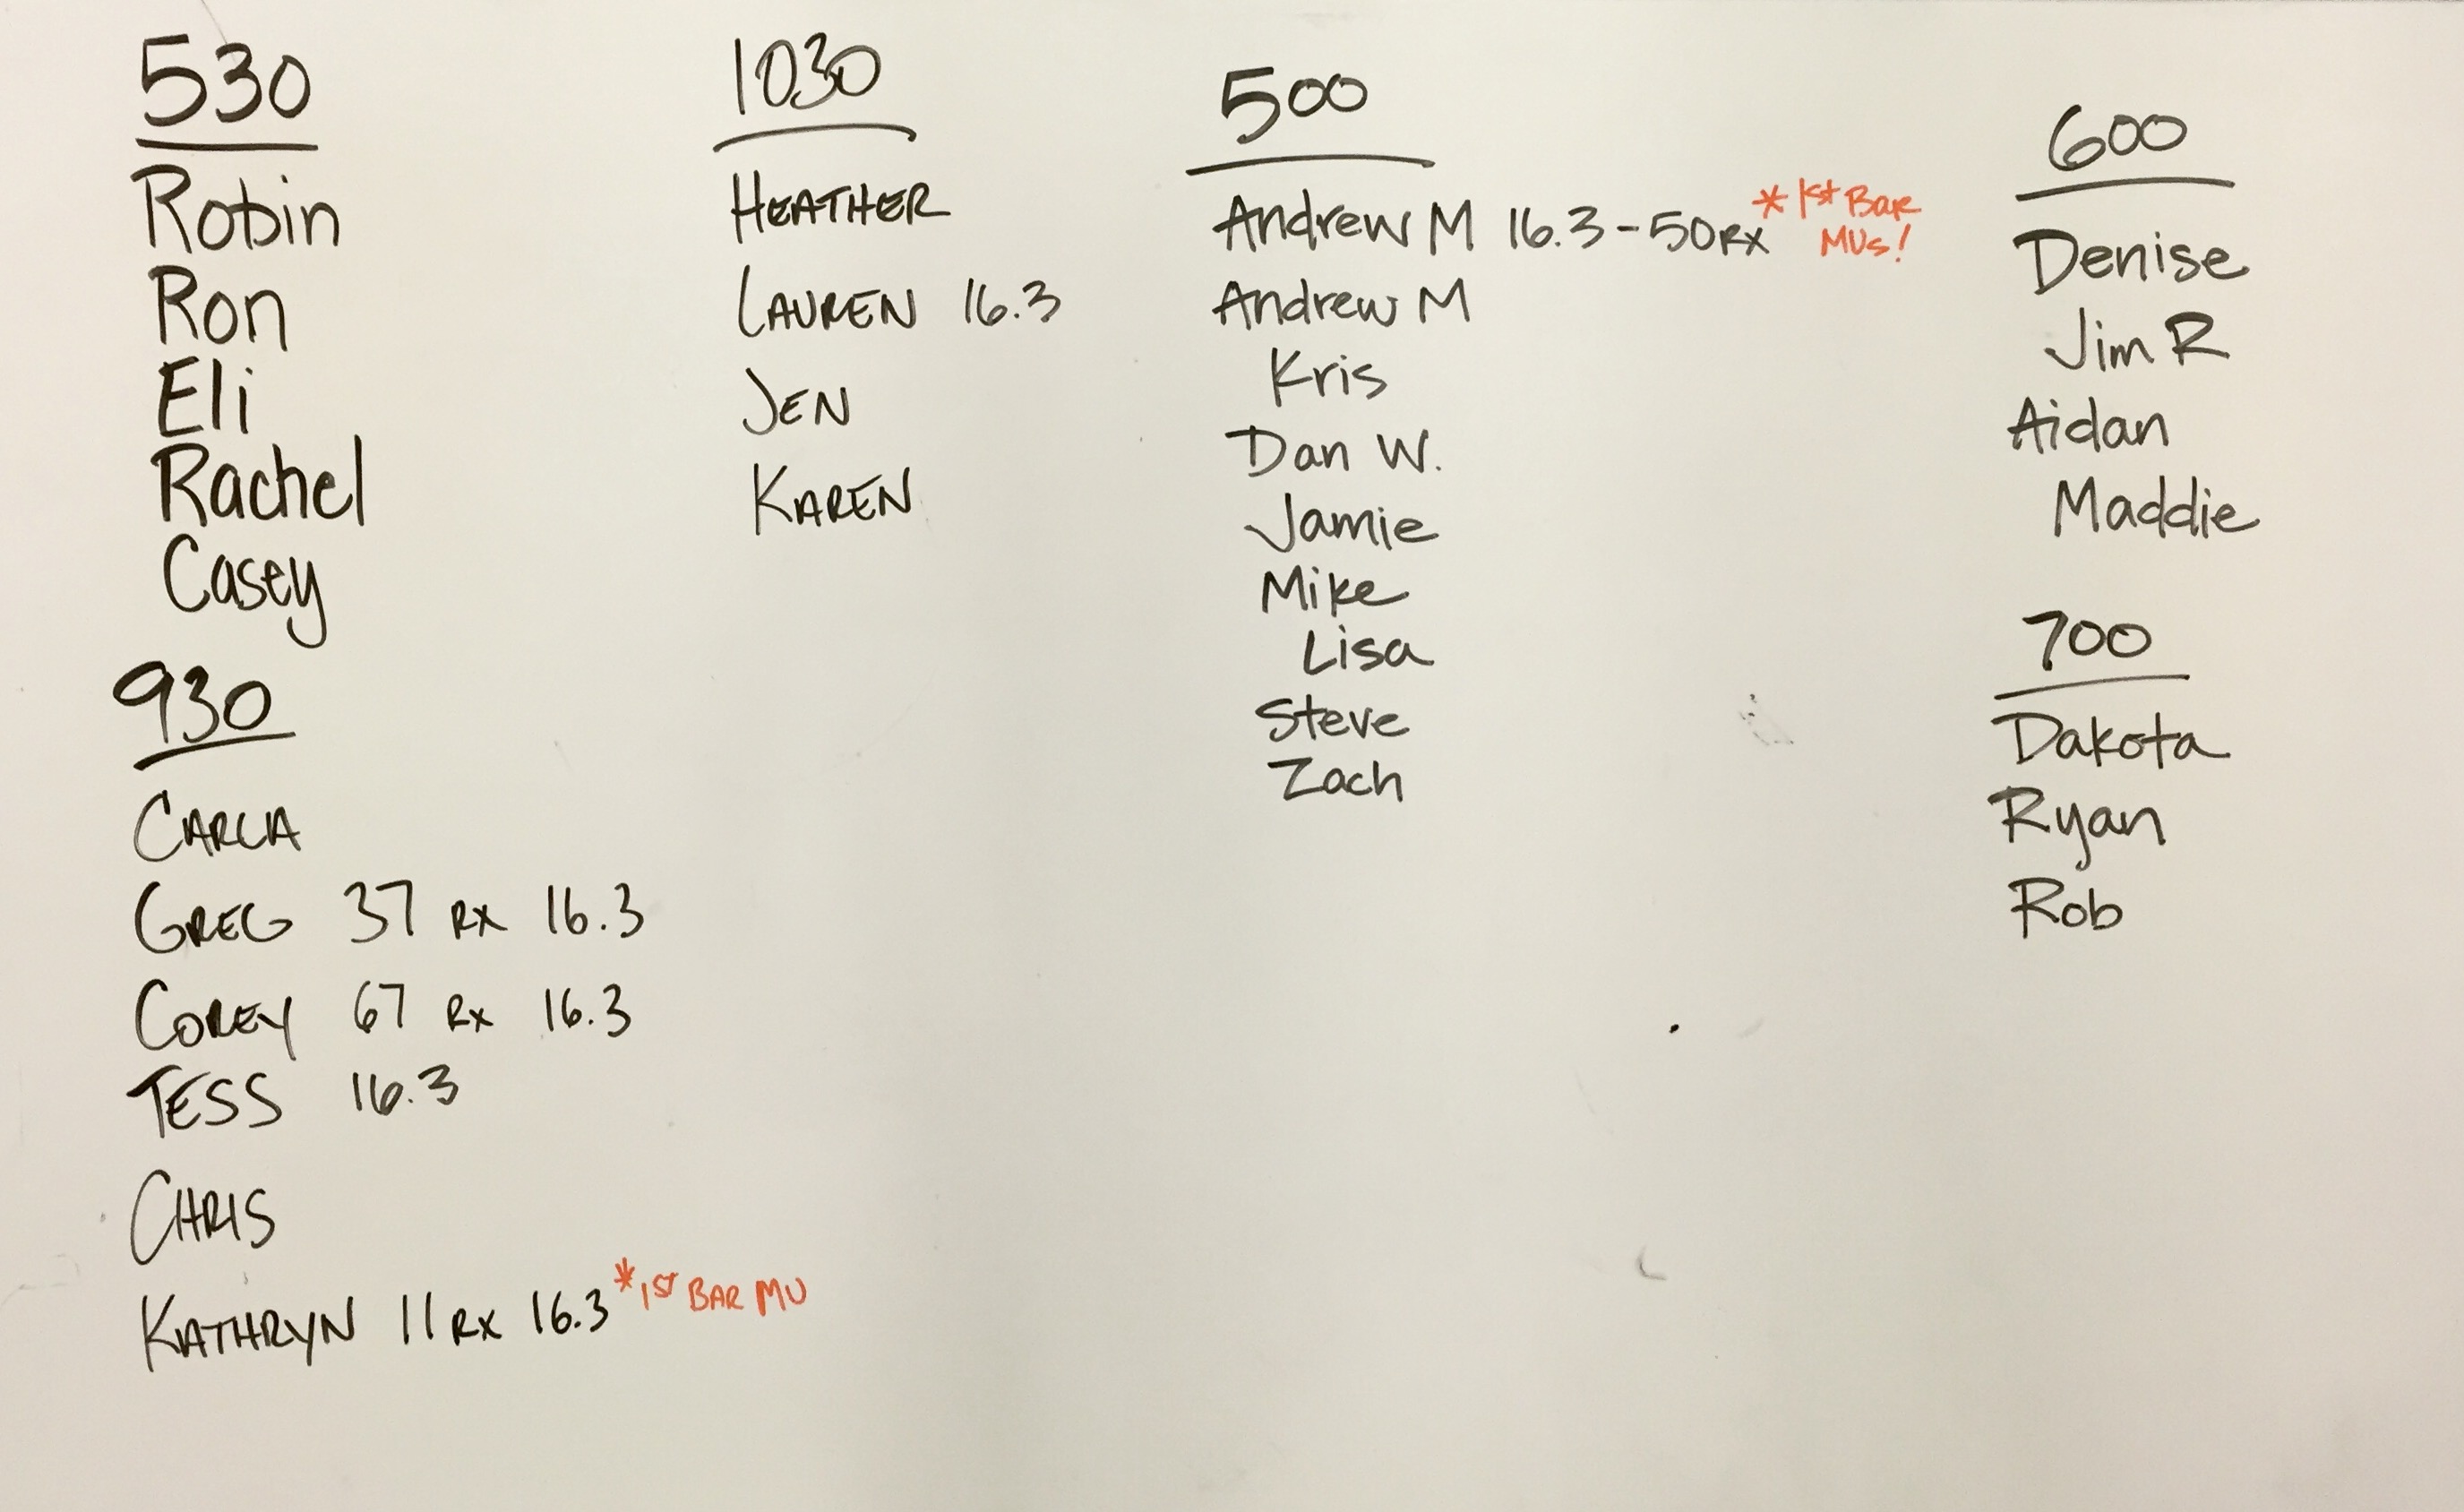 530
Robin
Ron
Eli
Rachel
Casey
930
CARLA
GREG 37 RX 16.3
COREY 67 RX 16.3
TESS 16.3
CHRIS
KATHRYN 11 RX 16.3 *1ST BAR MU
1030
HEATHER
LAUREN 16.3
JEN
KAREN
500
Andrew M 16.3-50RX *1st Bar
MUs!
Andrew M
Kris
Dan W.
Jamie
Mike
Lisa
Steve
Zach
600
Denise
Jim R
Aidan
Maddie
700
Dakota
Ryan
Rob